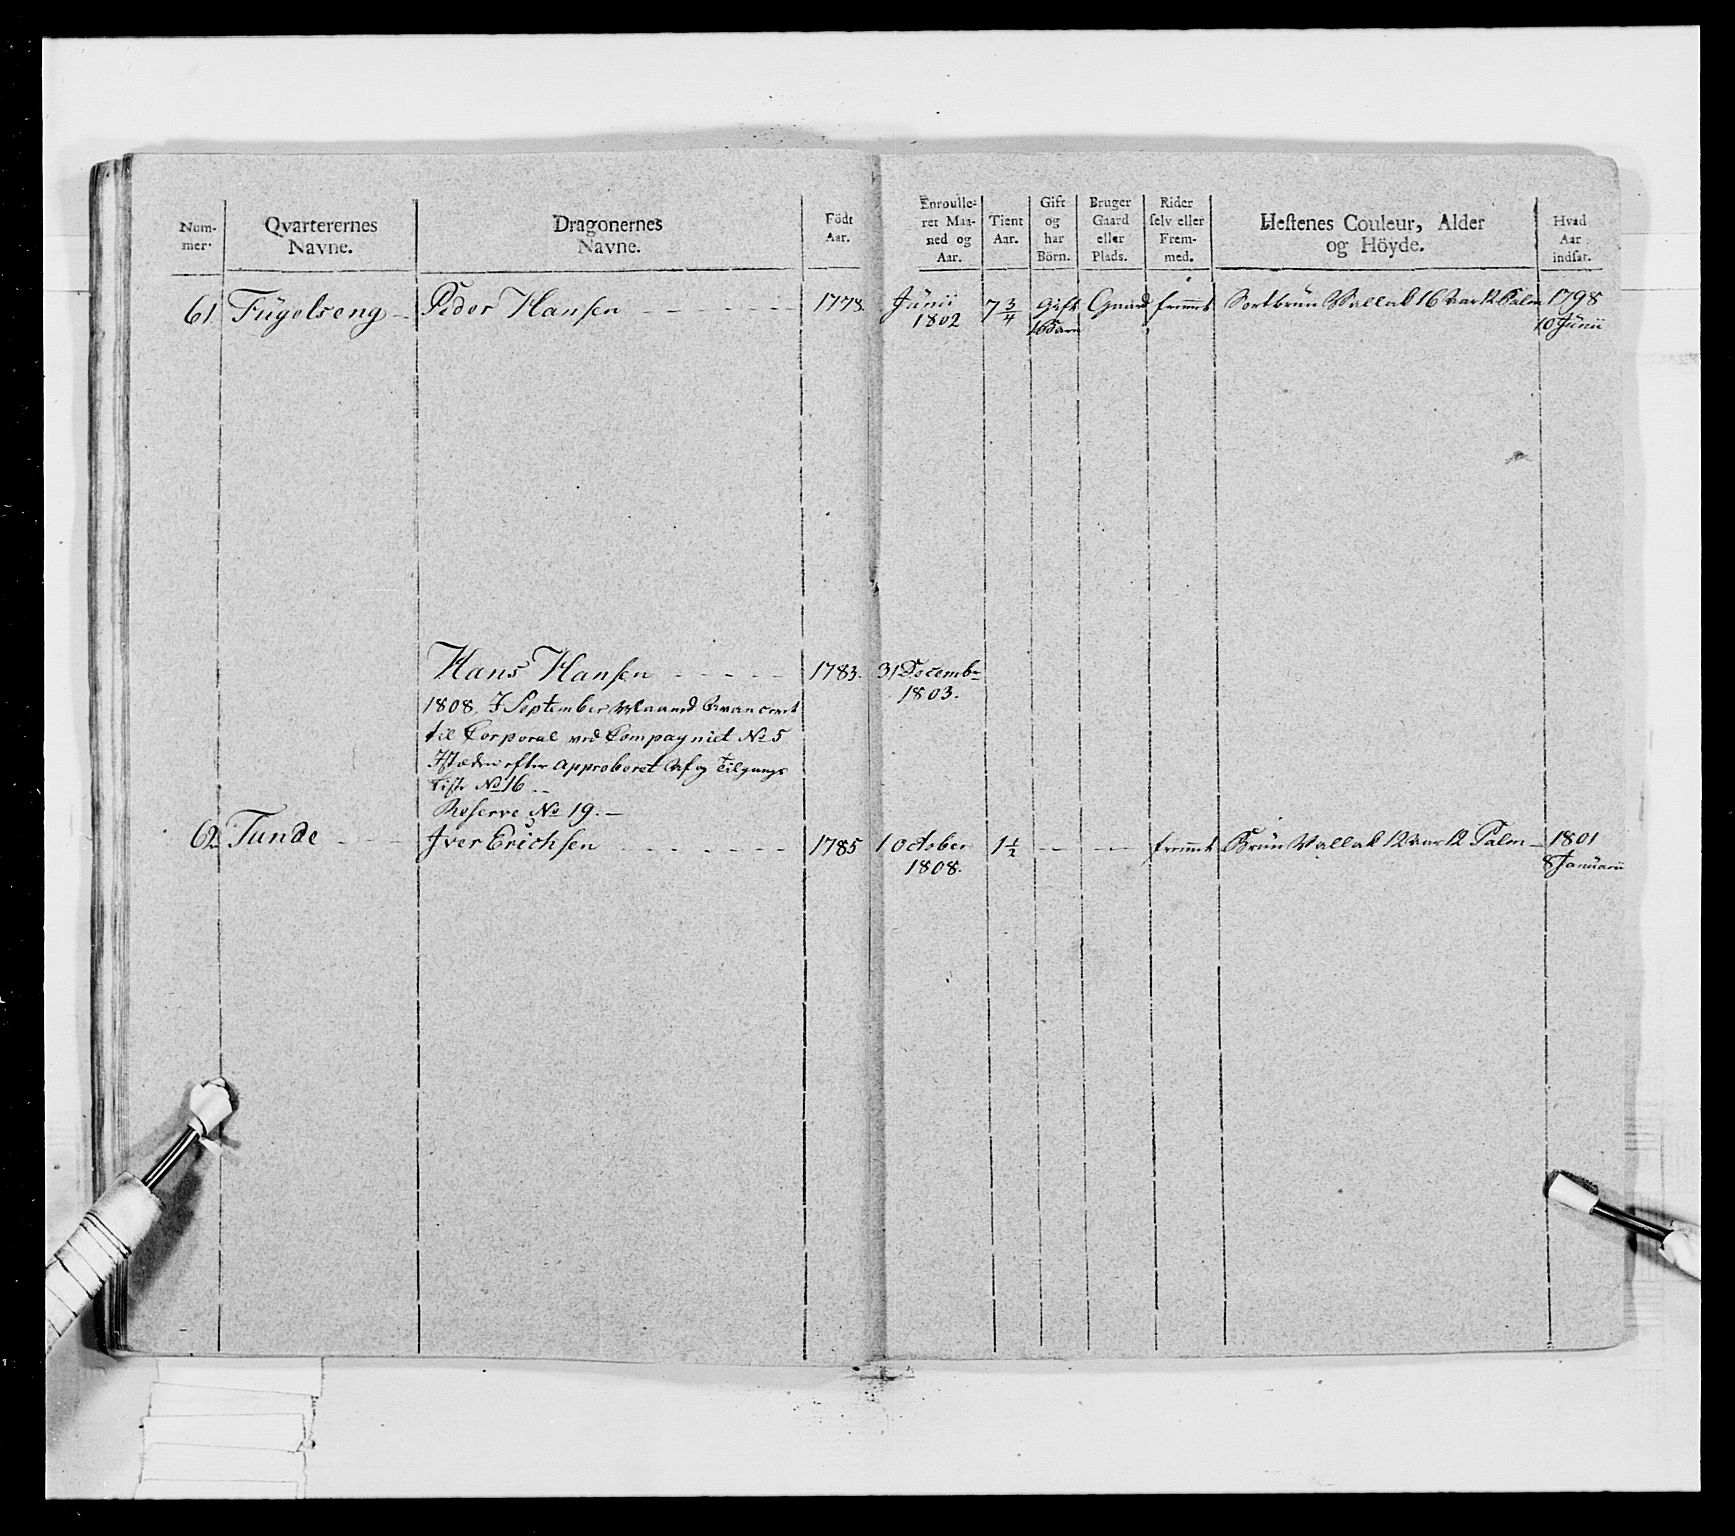 Num-
mer.
Qvarterernes
Navne.
Dragonernes
Navne.
Födt
Aar.
Enroulle-
ret Maa-
ned og
Aar.
Tient
Aar.
Gift
og
har
Börn.
Bruger
Gaard
eller
Plads.
Rider
selv eller
Frem-
med.
Hestenes Couleur, Alder
og Höyde.
Hvad
Aar
indsat.
61. Fügelseng Peder Hansen 1778. Junii 7 3/4 Gift Gaard fremt Sortbrün Vallak 16 Aar 12 Palm 1798
1802 1 Barn 10 Junii
Hans Hansen 1783. 31 Decembr
1803.
1808 I September Maaned Avanceret
til Corporal ved Compagniet No 5
Istæden efter Approberet Af og Tilgangs
Liste No 16
Reserve No 19.
62. Tunde Iver Erichsen 1785 1 October 1 1/2 fremt Brün Vallak 12 Aar 12 Palm 1801
1808. 8 Januarii